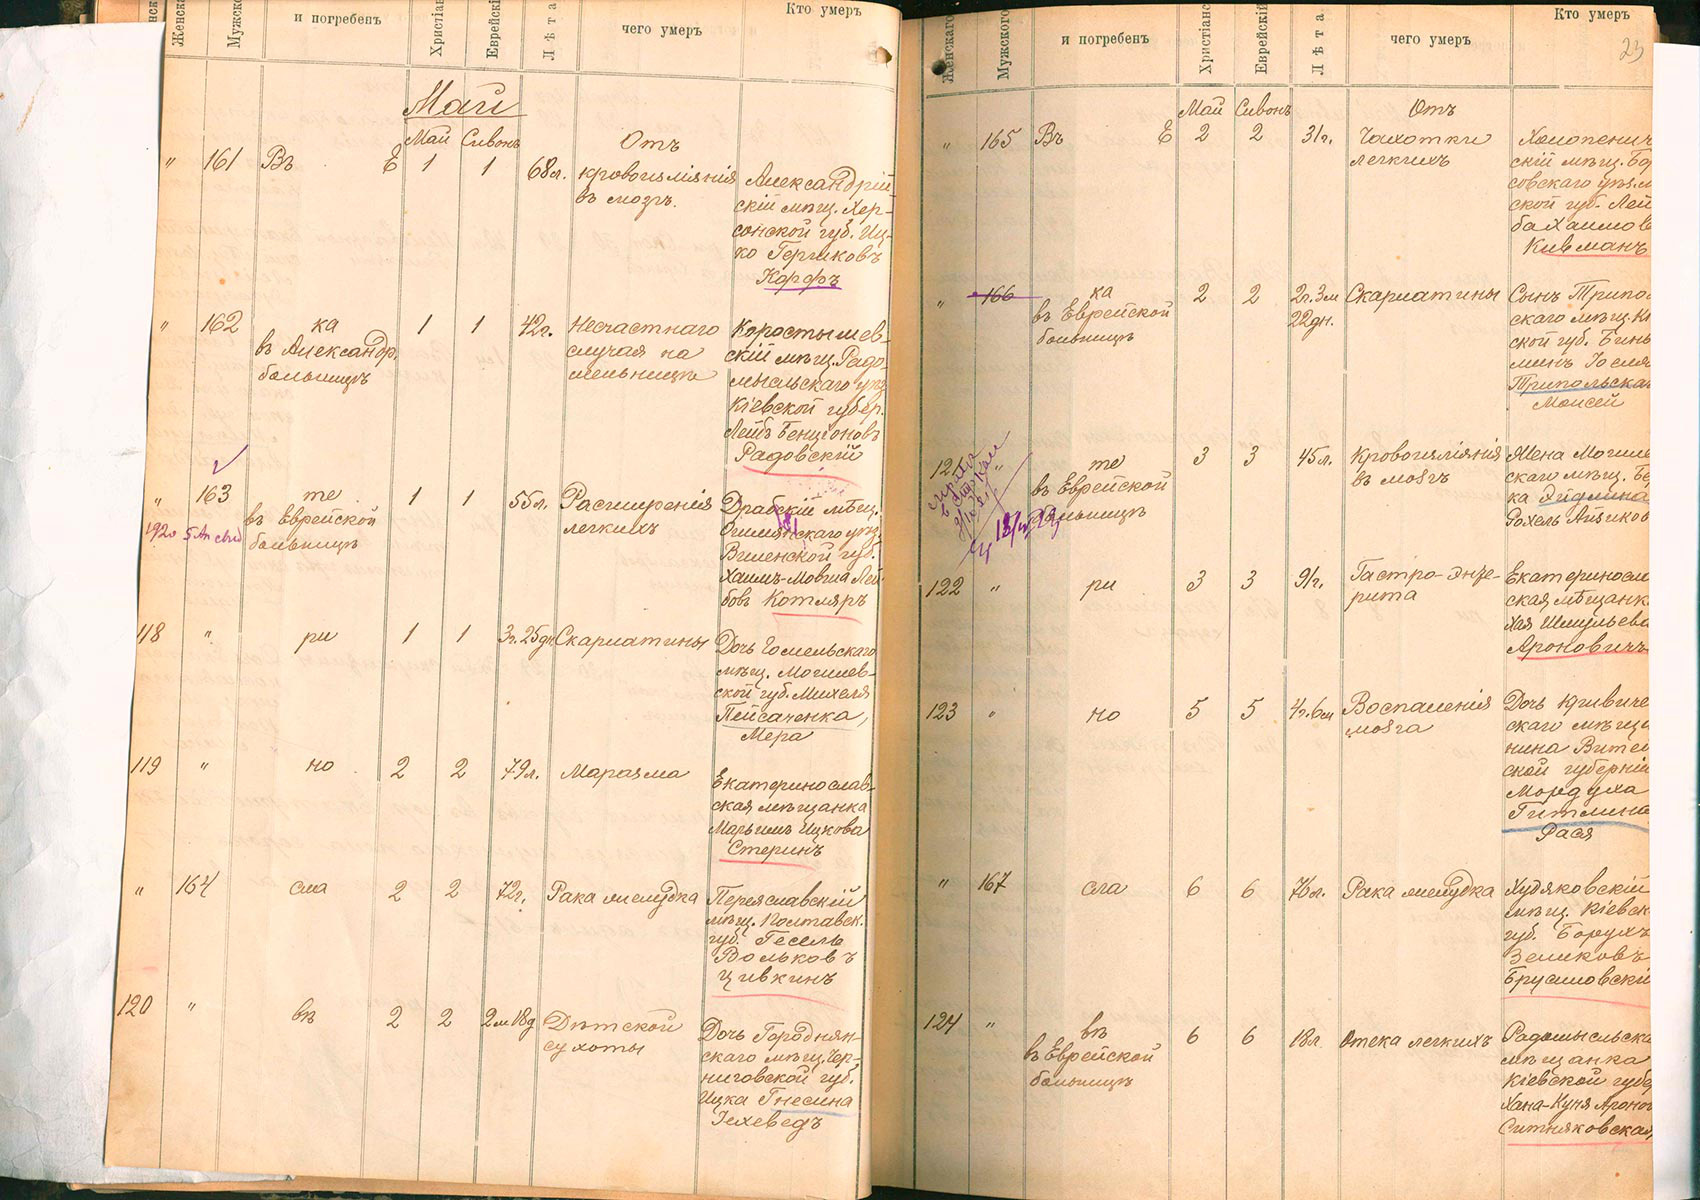 Женск
Мужско
и погребенъ
Христіан
Еврейскі
Лѣта
чего умеръ
Кто умеръ
Май
Май Сивонъ
Отъ
" 161 Въ Е 1 1 68л. кровоизліянія
въ мозгъ.
Александрій-
скій мѣщ. Хер-
сонской губ. Иц-
ко Гершковъ
Корфъ
" 162 ка 1 1 42г. Несчастнаго
въ Александр.
больницѣ
случая на
мельницѣ
Коростышев-
скій мѣщ. Радо-
мысльскаго уѣз.
Кіевской губер.
Лейбъ Бенціоновъ
Радовскій
" 163 те 1 1 55л. Расширенія
въ Еврейской
больницѣ
легкихъ
1920
Драбскій мѣщ.
Ошмянскаго уѣз.
Виленской губ.
Хаимъ-Мовша Лей-
бовъ Котляръ
118 " ри 1 1 3г. 25дн. Скарлатины
Дочь Гомельскаго
мѣщ. Могилев-
ской губ. Михеля
Пейсаченка,
Мера
119 " но 2 2 79л. Маразма
Екатеринослав-
ская мѣщанка
Марьимъ Ицкова
Стеринъ
" 164 сла 2 2 72г. Рака желудка
Переяславскій
мѣщ. Полтавск.
губ. Гесель
Вольковъ
Цивкинъ
120 " вѣ 2 2 2м 18д Дѣтской
сухоты
Дочь Городнян-
скаго мѣщ. Чер-
ниговской губ.
Ицка Гнесина
Іехеведъ
Женскаго
Мужского
и погребенъ
Христіанс
Еврейскій
Лѣта
чего умеръ
Кто умеръ
23
Май Сивонъ
Отъ
" 165 Въ Е 2 2 31г. Чахотки
легкихъ
Холопенич
скій мѣщ. Бор
совскаго уѣз. М
ской губ. Лей
ба Хаимов
Кивманъ
" 166 ка 2 2 2г. 3м Скарлатины
22дн.
въ Еврейской
больницѣ
Сынъ Трипо
скаго мѣщ. Кі
ской губ. Бинь
минъ Іосля
Трипольска
Моисей
121 " те 3 3 45л. Кровоизліянія
въ Еврейской
больницѣ
въ мозгъ
Жена Могиле
скаго мѣщ. Бе
ка Эйдлина
Рохель Айзиков
122 " ри 3 3 91г. Гастро-энте-
рита
Екатериносла
ская мѣщанк
Хая Шмульева
Ароновичъ
123 " но 5 5 4г. 6м Воспаленія
мозга
скаго мѣща
нина Витеб
ской губерніи
Мордуха
Гитлина
Рася
" 167 сла 6 6 76л. Рака желудка
Худяковскій
мѣщ. Кіевск
губ. Борухъ
Зеликовъ
Брусиловскій
124 " вѣ 6 6 18л Отека легкихъ
въ Еврейской
больницѣ
Радомысльска
мѣщанка
Кіевской губе
Хана-Куня Аронов
Ситняковская